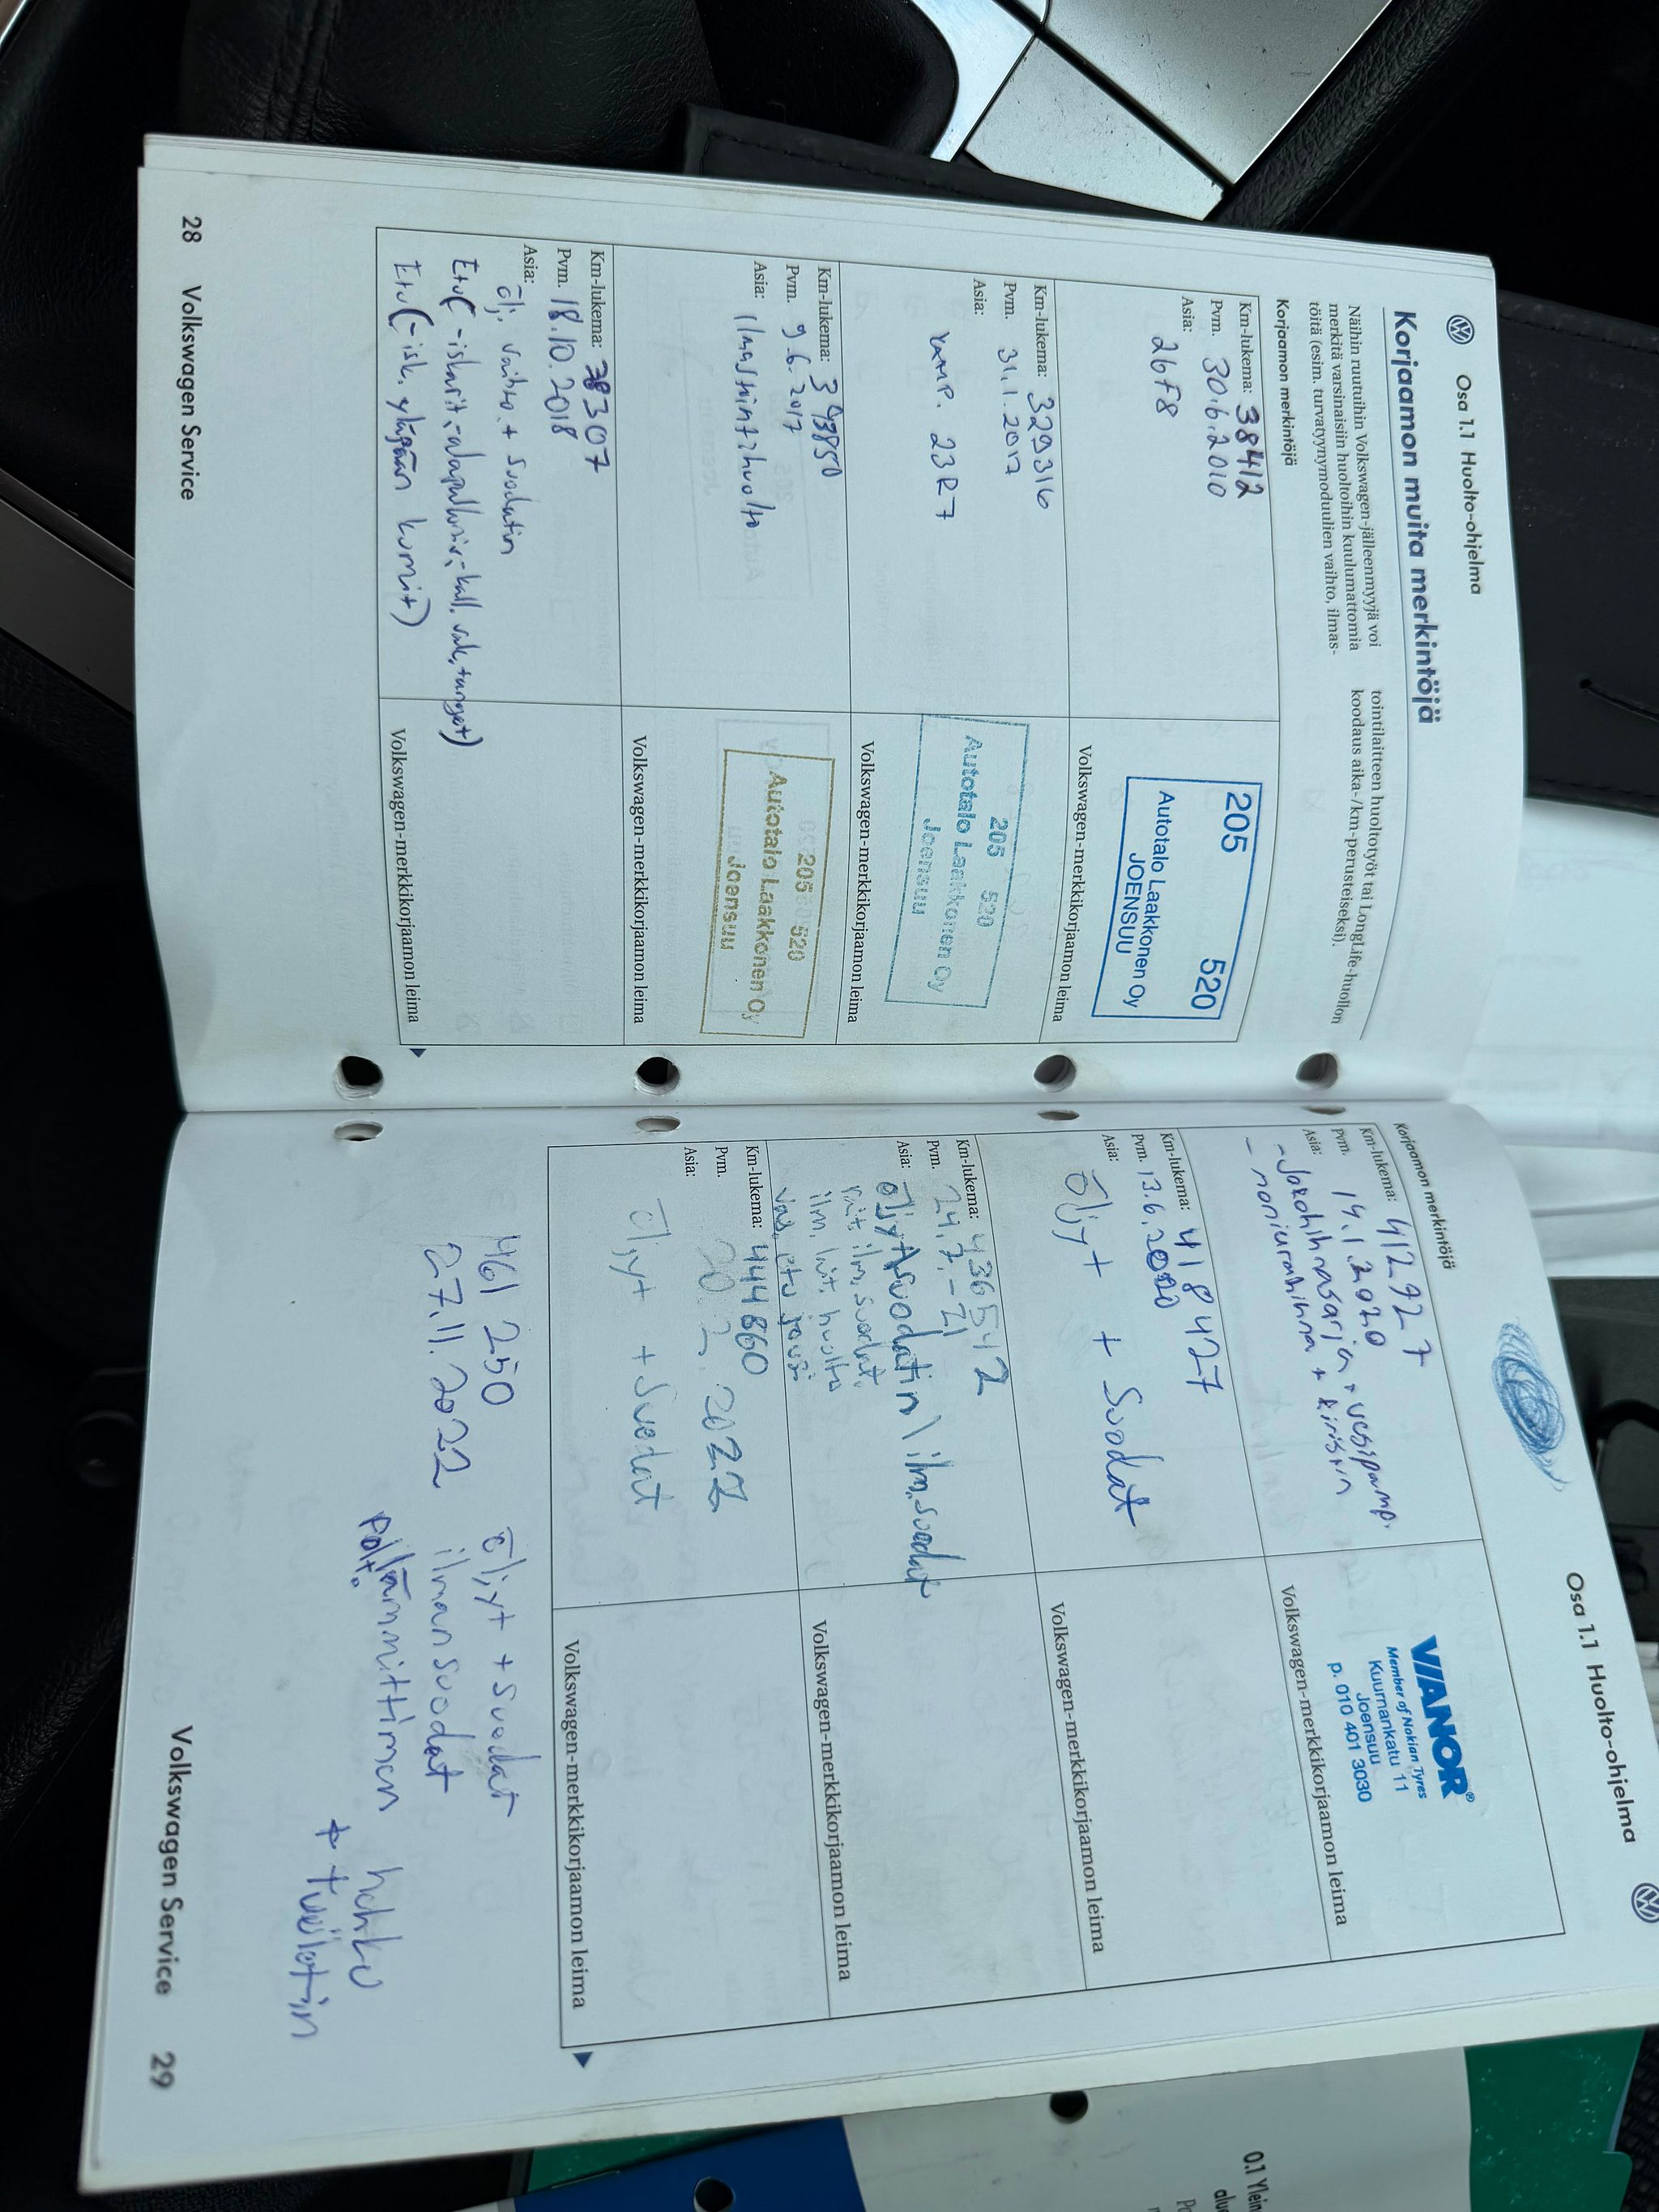 Osa 1.1 Huolto-ohjelma
Korjaamon muita merkintöjä
Näihin ruutuihin Volkswagen-jälleenmyyjä voi
merkitä varsinaisiin huoltoihin kuulumattomia
töitä (esim. turvatyynymoduulien vaihto, ilmas-
tointilaitteen huoltotyöt tai LongLife-huollon
koodaus aika-/km-perusteiseksi).
Korjaamon merkintöjä
Km-lukema: 38412
Pvm. 30.6.2010
Asia: 26F8
205 520
Autotalo Laakkonen Oy
JOENSUU
Volkswagen-merkkikorjaamon leima
Km-lukema: 329316
Pvm. 31.1.2017
Asia:
23R7
205 520
Autotalo Laakkonen Oy
Joensuu
Volkswagen-merkkikorjaamon leima
Km-lukema:
Pvm. 9.6.2017
Asia: Ilmastointihuolto
205 520
Autotalo Laakkonen Oy
Joensuu
Volkswagen-merkkikorjaamon leima
Km-lukema: 38307
Pvm. 18.10.2018
Asia:
ölj. vaihto + suodatin
Etu(-iskarit,
Etu(-isk. yläpään kumit)
Volkswagen-merkkikorjaamon leima
28 Volkswagen Service
Osa 1.1 Huolto-ohjelma
Korjaamon merkintöjä
Km-lukema: 412927
Pvm. 14.1.2020
Asia: -Jakohihnasarja + vesipump.
- moniurahihna + kiristin
VIANOR®
Member of Nokian Tyres
Kuurnankatu 11
Joensuu
p. 010 401 3030
Volkswagen-merkkikorjaamon leima
Km-lukema: 418427
Pvm. 13.6.2020
Asia:
Öljyt + Suodat
Volkswagen-merkkikorjaamon leima
Km-lukema: 436542
Pvm. 24.7.-21
Asia: öljyt/suodatin/ilm.suodat
rait. ilm. suodat.
ilm. lait. huolto
vas. etu jousi
Volkswagen-merkkikorjaamon leima
Km-lukema: 444860
Pvm. 20.2.2022
Asia:
Öljyt + Suodat
Volkswagen-merkkikorjaamon leima
461 250 Öljyt + suodat
27.11.2022 ilmansuodat
polt. lämmittimen hehku
+ tuuletin
Volkswagen Service 29